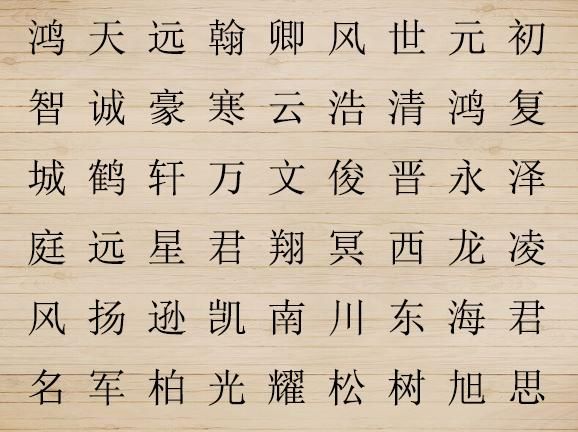 鸿 天 远 翰 卿 风 世 元 初
智 诚 豪 寒 云 浩 清 鸿 复
城 鹤 轩 万 文 俊 晋 永 泽
庭 远 星 君 翔 冥 西 龙 凌
风 扬 逊 凯 南 川 东 海 君
名 军 柏 光 耀 松 树 旭 思